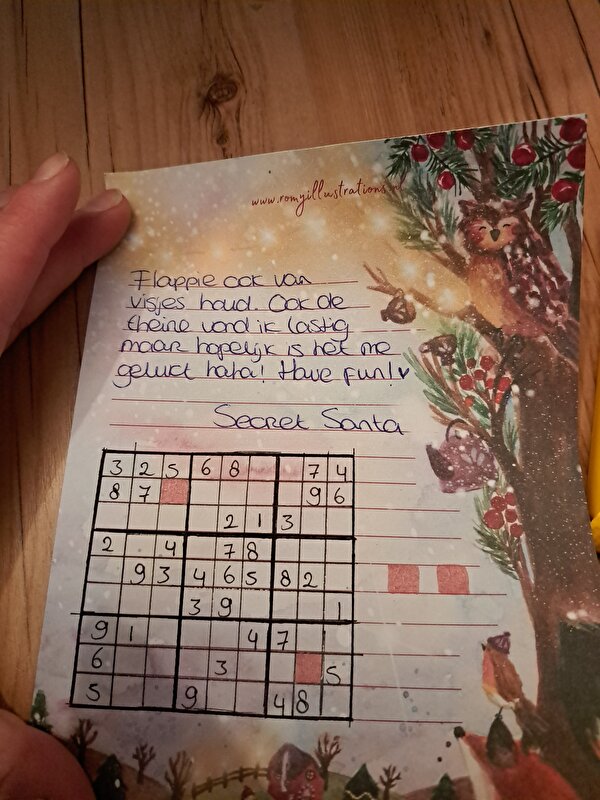 www.romyillustrations.nl
Flappie ook van
visjes houd. Ook de
theine vond ik lastig
maar hopelijk is het me
gelukt haha! Have fun!♥
Secret Santa
3 2 5 6 8 7 4
8 7 9 6
2 1 3
2 4 7 8
9 3 4 6 5 8 2
3 9 1
9 1 4 7
6 3 5
5 9 4 8